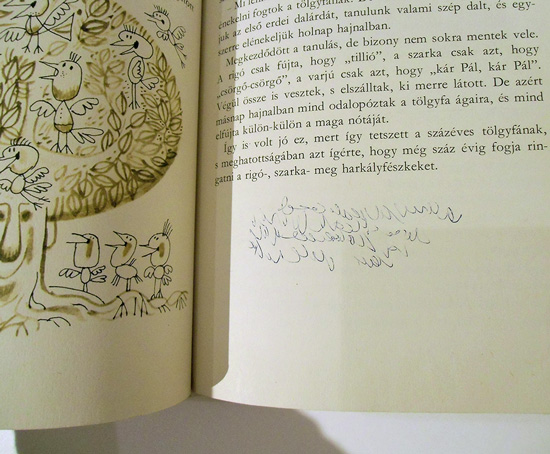 énekelni fogtok a tölgyfának.
juk az első erdei dalárdát, tanulunk valami szép dalt, és egy-
szerre elénekeljük holnap hajnalban.
Megkezdődött a tanulás, de bizony nem sokra mentek vele.
A rigó csak fújta, hogy „tillió”, a szarka csak azt, hogy
„csörgő-csörgő”, a varjú csak azt, hogy „kár Pál, kár Pál”.
Végül össze is vesztek, s elszálltak, ki merre látott. De azért
másnap hajnalban mind odalopóztak a tölgyfa ágaira, és mind
elfújta külön-külön a maga nótáját.
Így is volt jó ez, mert így tetszett a százéves tölgyfának,
s meghatottságában azt ígérte, hogy még száz évig fogja rin-
gatni a rigó-, szarka- meg harkályfészkeket.